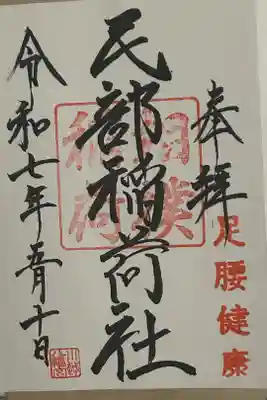 奉拝
足腰健康
民部稲荷社
相撲
稲荷
令和七年五月十日